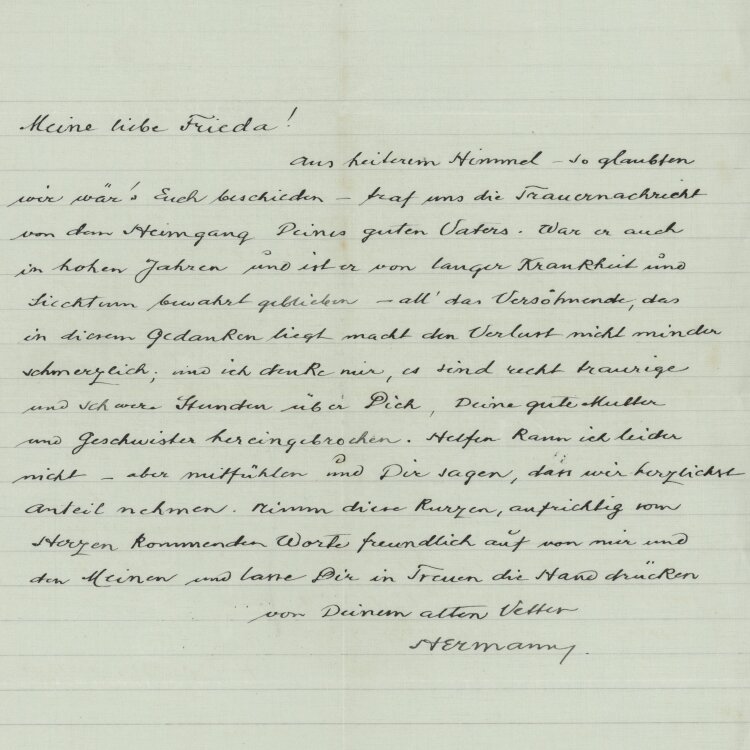 Meine liebe Frieda!
aus heiterem Himmel – so glaubten
wir wär's Euch beschieden – traf uns die Trauernachricht
von dem Heimgang Deines guten Vaters. War er auch
in hohen Jahren und ist er von langer Krankheit und
Siechtum bewahrt geblieben – all' das Versöhnende, das
in diesem Gedanken liegt macht den Verlust nicht minder
schmerzlich; und ich denke mir, es sind recht traurige
und schwere Stunden über Dich, Deine gute Mutter
und Geschwister hereingebrochen. Helfen kann ich leider
nicht – aber mitfühlen und Dir sagen, dass wir herzlichst
Anteil nehmen. Nimm diese kurzen, aufrichtig vom
Herzen kommenden Worte freundlich auf von mir und
den Meinen und lasse Dir in Treuen die Hand drücken
von Deinem alten Vetter
Hermann.